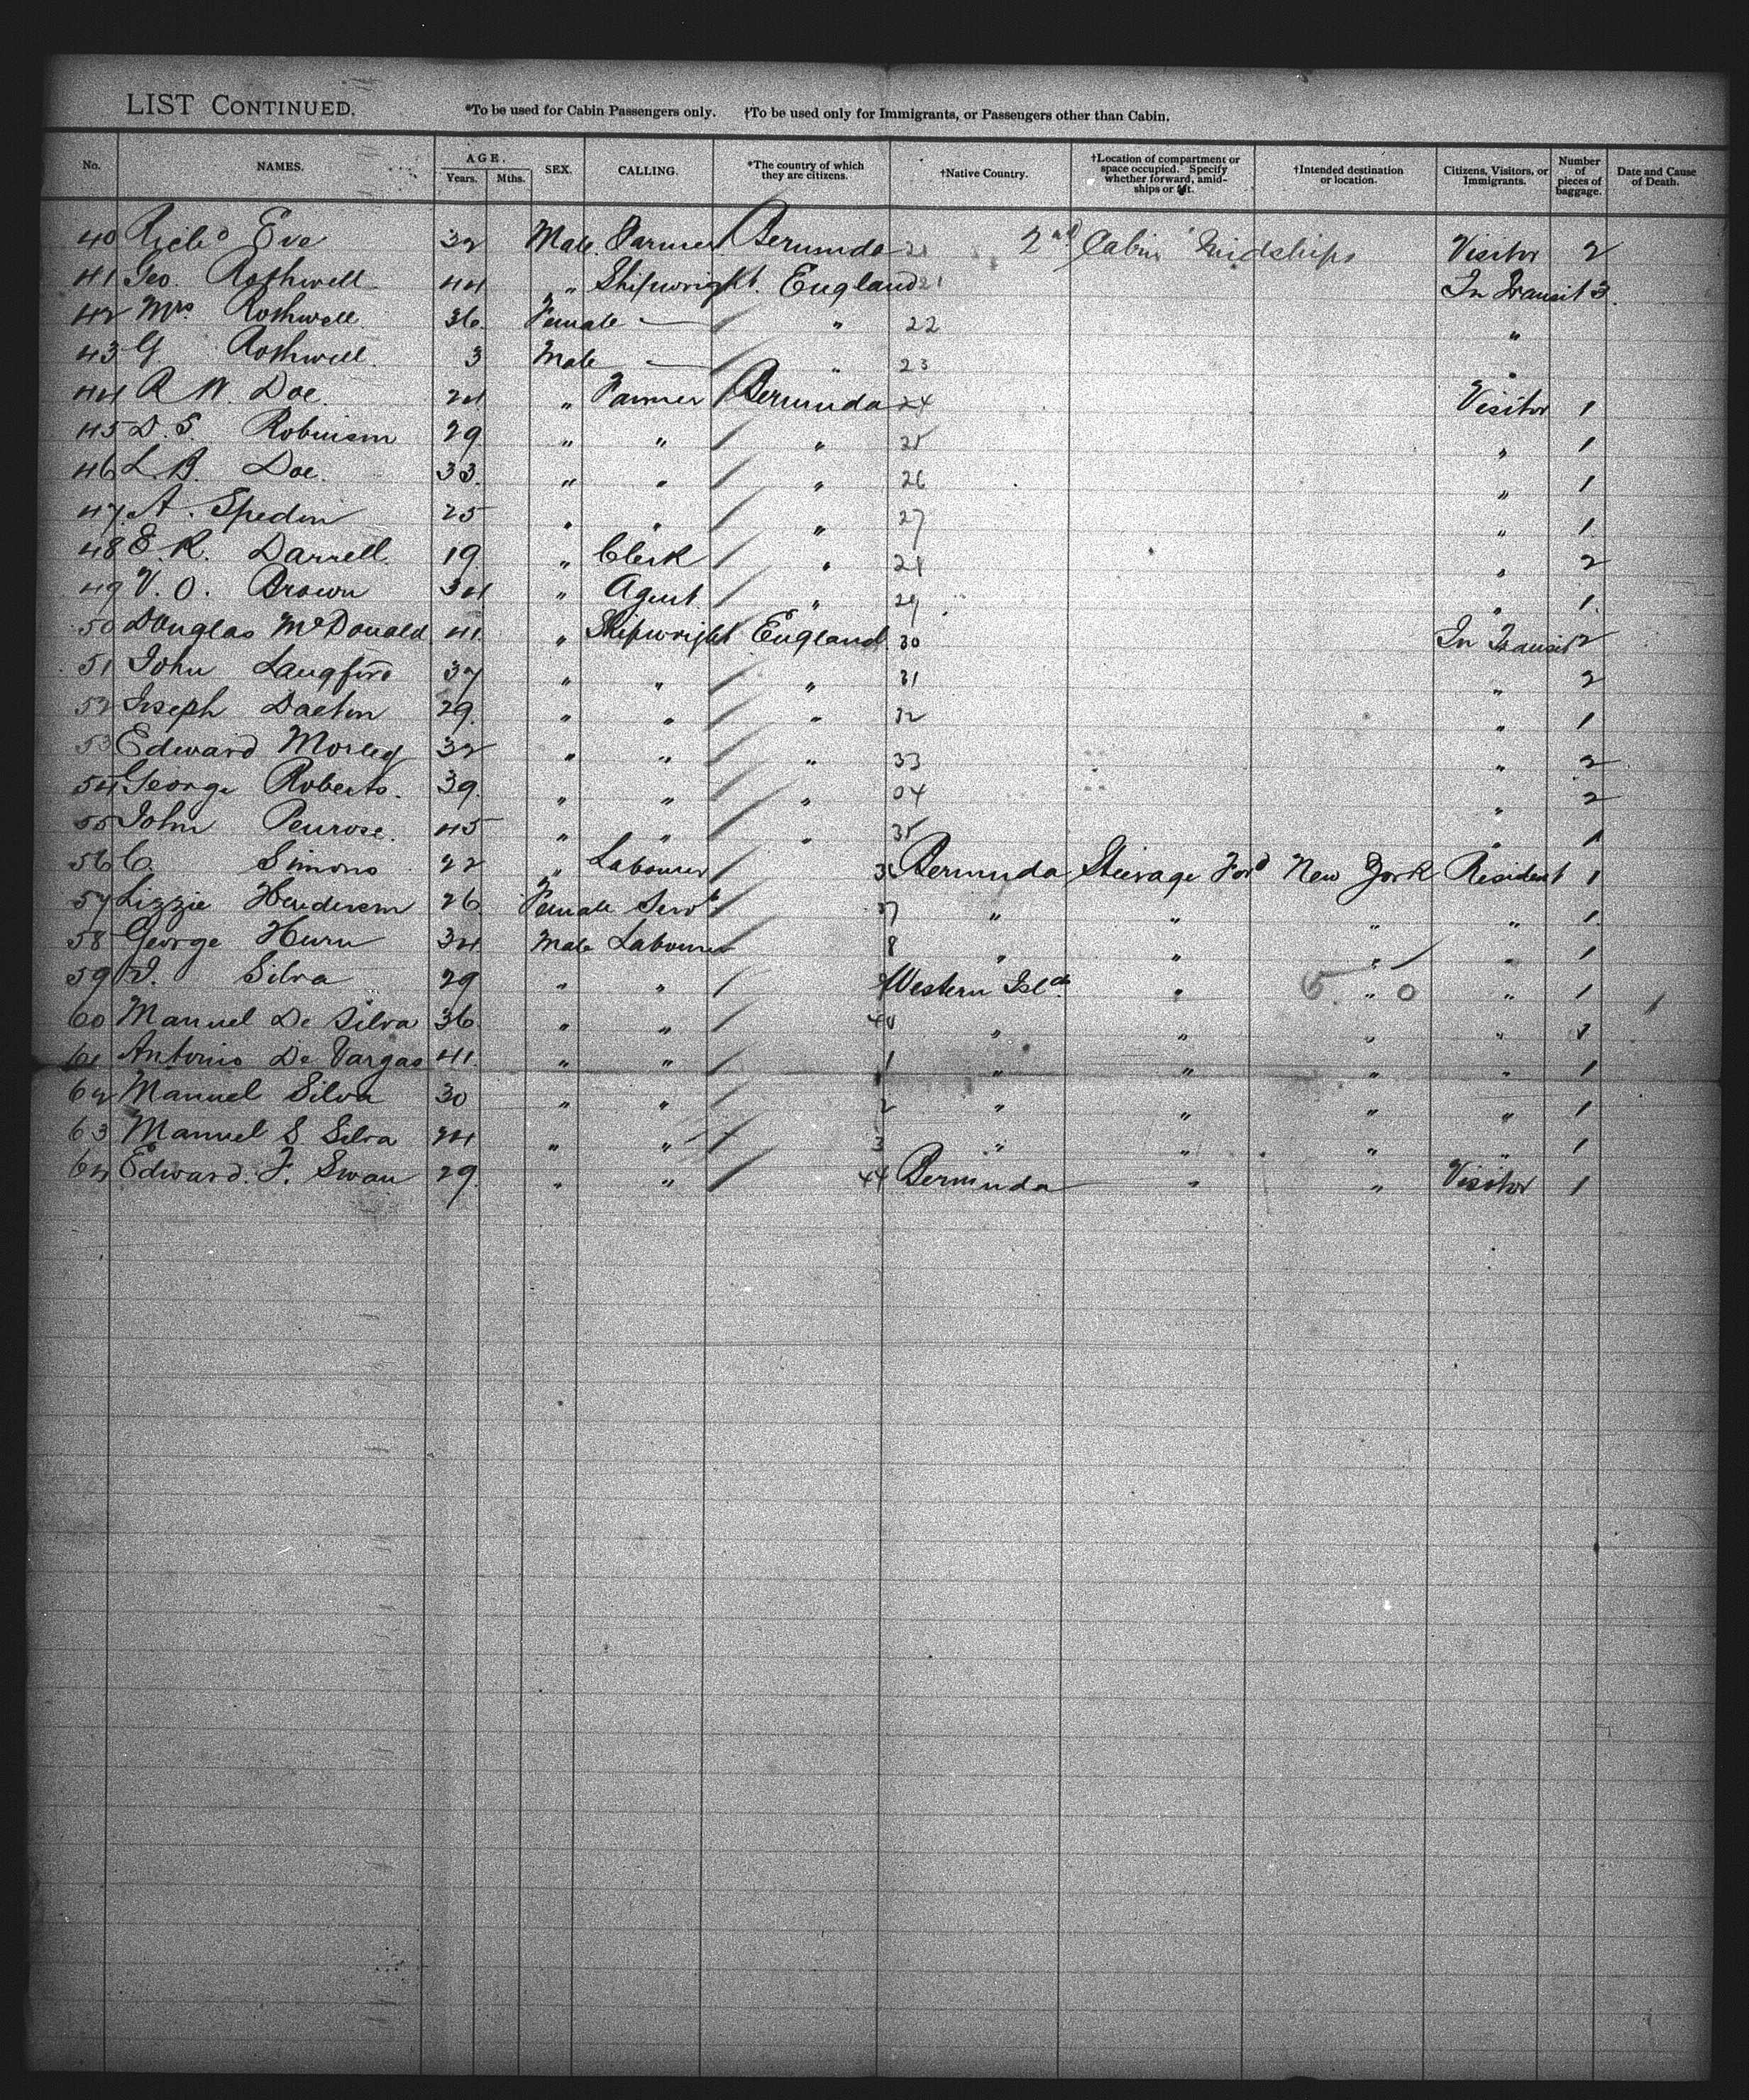 LIST CONTINUED. *To be used for Cabin Passengers only. †To be used only for Immigrants, or Passengers other than Cabin.
No. NAMES. AGE. Years. Mths. SEX. CALLING. *The country of which they are citizens. †Native Country. †Location of compartment or space occupied. Specify whether forward, amidships or aft. †Intended destination or location. Citizens, Visitors, or Immigrants. Number of pieces of baggage. Date and Cause of Death.
40 Richd Eve 32 Male Farmer Bermuda 2nd Cabin Midships Visitor 2
41 Geo. Rothwell 44 " Shipwright England 21 In Transit 3
42 Mrs Rothwell 36 Female — " 22 "
43 G Rothwell 3 Male — " 23 "
44 R W. Doe 24 " Farmer Bermuda 24 Visitor 1
45 D. S. Robinson 29 " " " 25 " 1
46 L. B. Doe 33 " " " 26 " 1
47 A. Spedon 25 " " " 27 " 1
48 E. R. Darrell 19 " Clerk " 28 " 2
49 V. O. Brown 34 " Agent " 29 " 1
50 Douglas McDonald 41 " Shipwright England 30 In Transit 2
51 John Langford 37 " " " 31 " 2
52 Joseph Daeton 29 " " " 32 " 1
53 Edward Morley 32 " " " 33 " 2
54 George Roberts 39 " " " 34 " 2
55 John Penrose 45 " " " 35 " 1
56 C. Simons 22 " Labourer Bermuda Steerage Ford New York Resident 1
57 Lizzie Henderson 26 Female Servt 37 " " " " 1
58 George Hurn 34 Male Labourer 8 " " " " 1
59 J. Silva 29 " " Western Islds " " " 1
60 Manuel De Silva 36 " " 40 " " " " 1
61 Antonio De Vargas 41 " " 1 " " " " 1
62 Manuel Silva 30 " " 2 " " " " 1
63 Manuel S Silva 24 " " 3 " " " " 1
64 Edward. F. Swan 29 " " 44 Bermuda " " Visitor 1